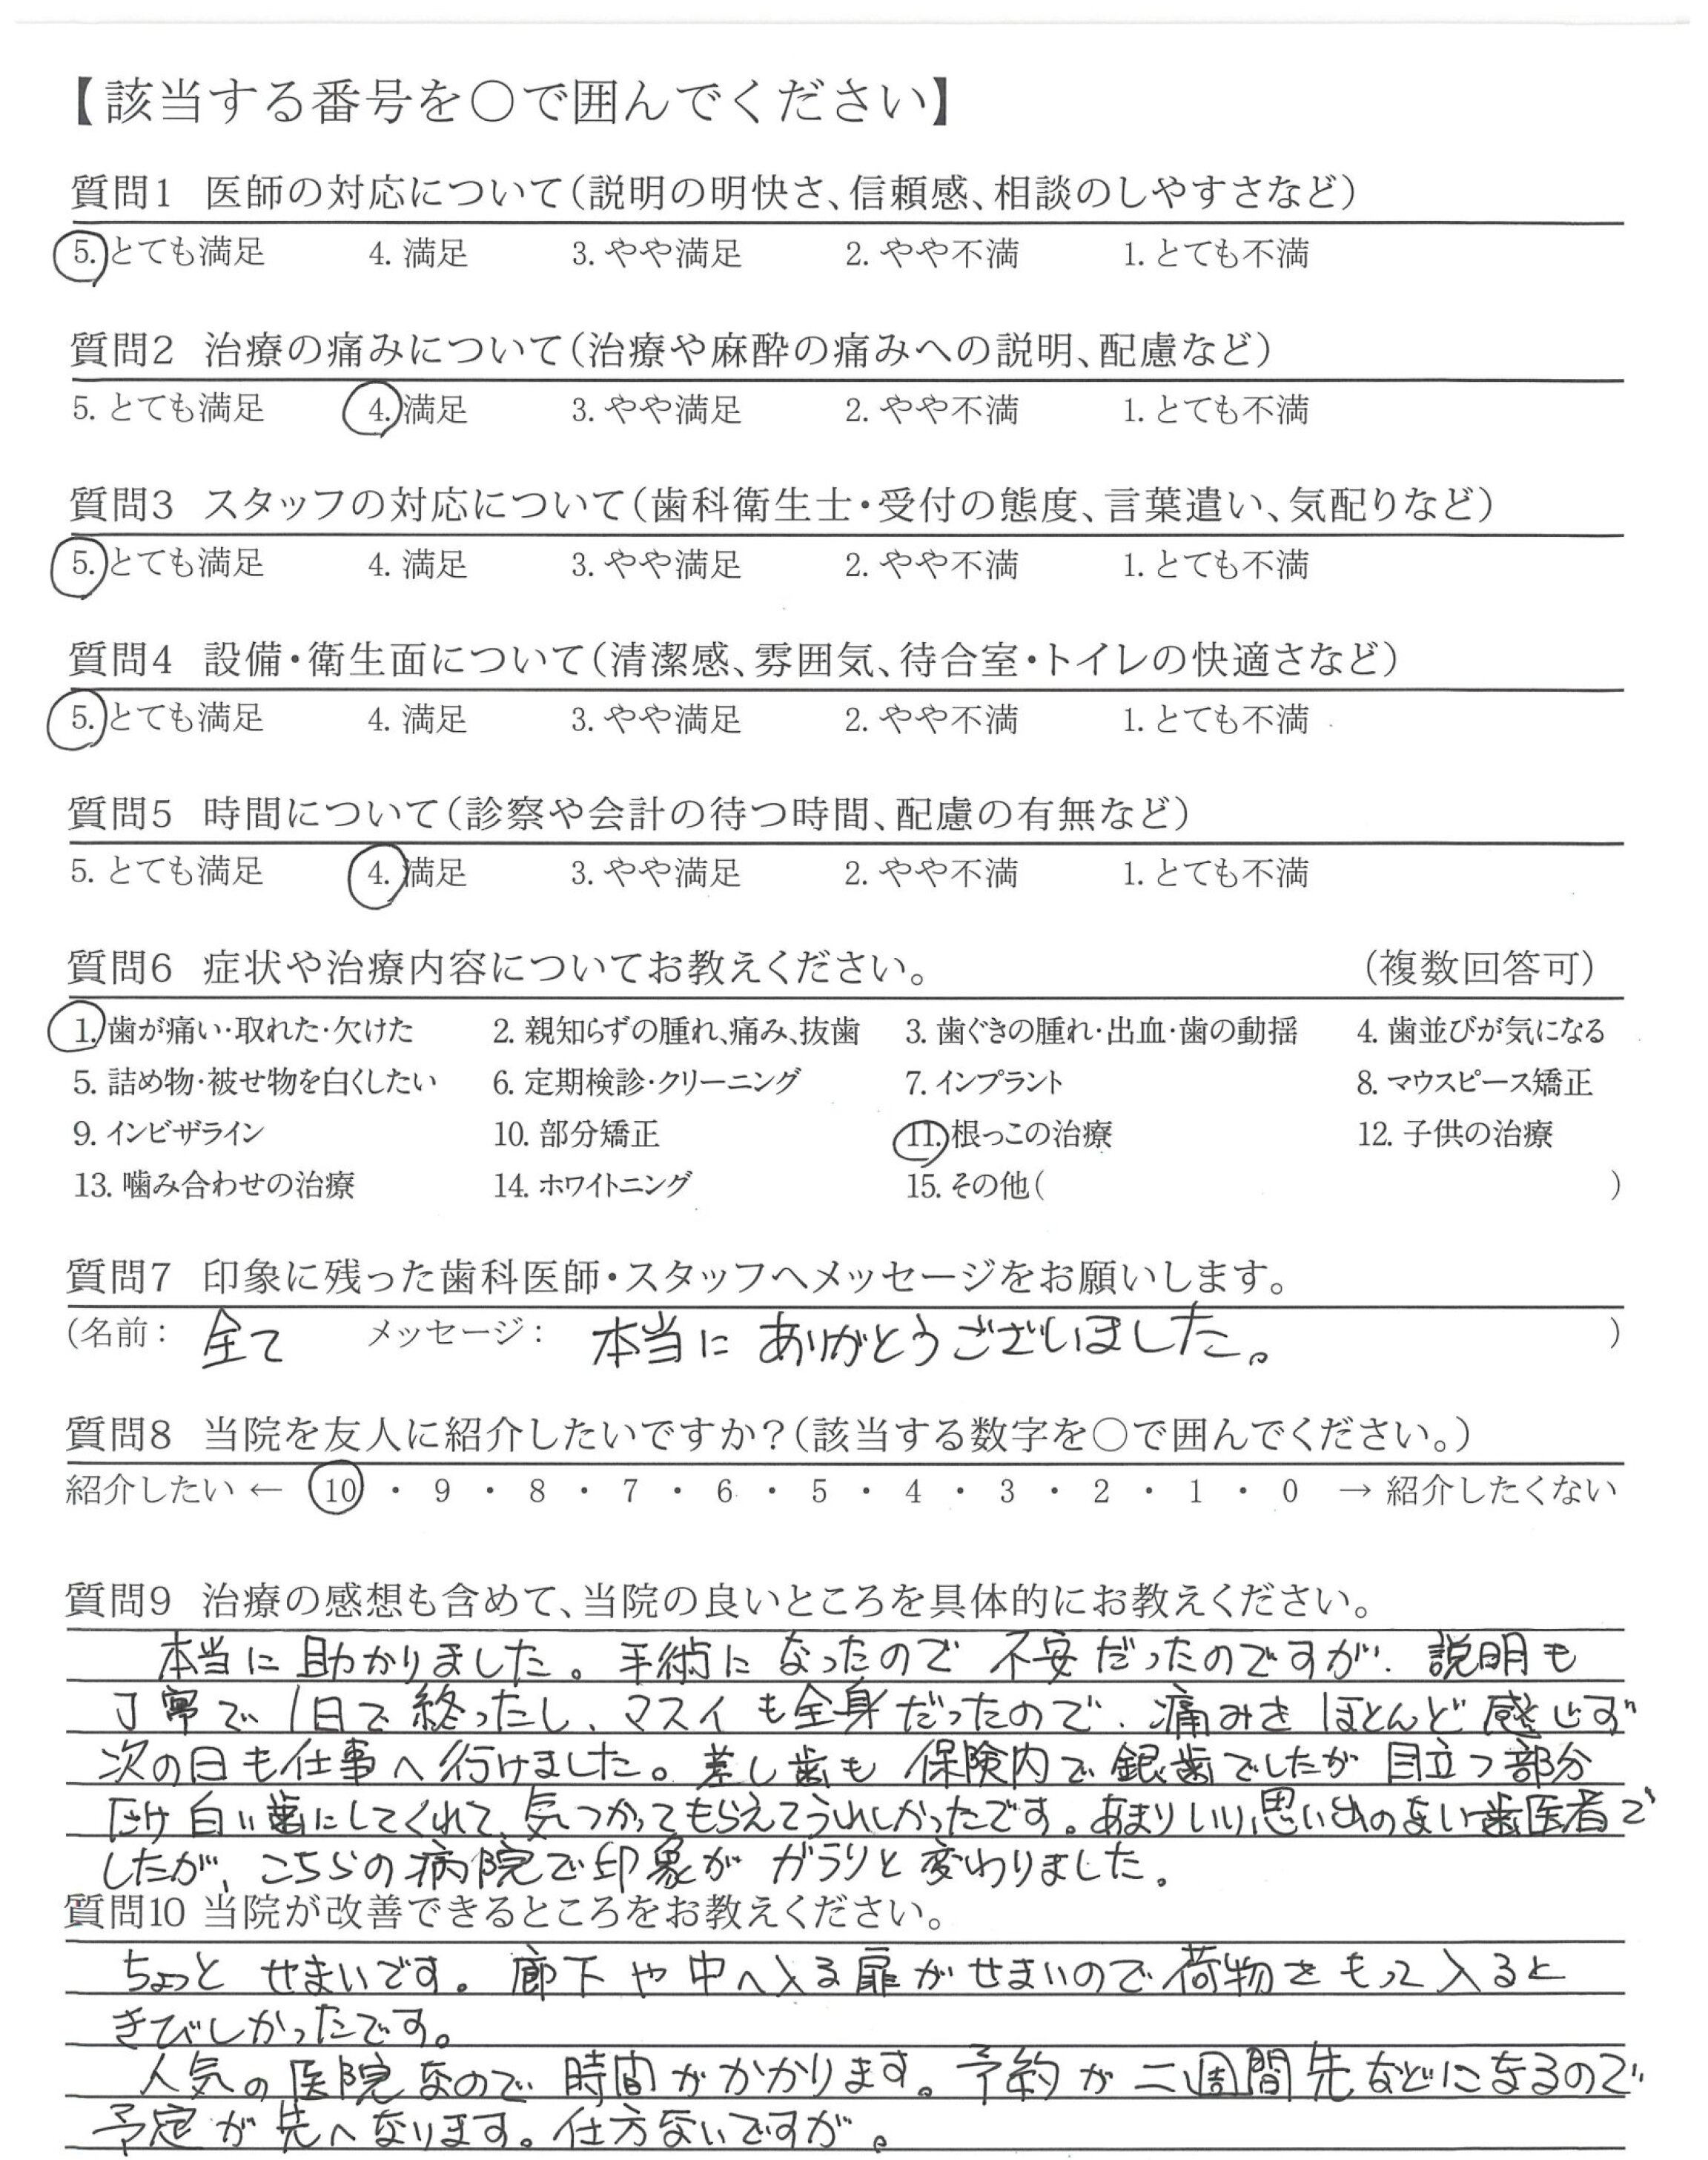 【該当する番号を○で囲んでください】
質問1 医師の対応について(説明の明快さ、信頼感、相談のしやすさなど)
5. とても満足 4. 満足 3. やや満足 2. やや不満 1. とても不満
質問2 治療の痛みについて(治療や麻酔の痛みへの説明、配慮など)
5. とても満足 4. 満足 3. やや満足 2. やや不満 1. とても不満
質問3 スタッフの対応について(歯科衛生士・受付の態度、言葉遣い、気配りなど)
5. とても満足 4. 満足 3. やや満足 2. やや不満 1. とても不満
質問4 設備・衛生面について(清潔感、雰囲気、待合室・トイレの快適さなど)
5. とても満足 4. 満足 3. やや満足 2. やや不満 1. とても不満
質問5 時間について(診察や会計の待つ時間、配慮の有無など)
5. とても満足 4. 満足 3. やや満足 2. やや不満 1. とても不満
質問6 症状や治療内容についてお教えください。 (複数回答可)
1. 歯が痛い・取れた・欠けた 2. 親知らずの腫れ、痛み、抜歯 3. 歯ぐきの腫れ・出血・歯の動揺 4. 歯並びが気になる
5. 詰め物・被せ物を白くしたい 6. 定期検診・クリーニング 7. インプラント 8. マウスピース矯正
9. インビザライン 10. 部分矯正 11. 根っこの治療 12. 子供の治療
13. 噛み合わせの治療 14. ホワイトニング 15. その他( )
質問7 印象に残った歯科医師・スタッフへメッセージをお願いします。
(名前: 全て メッセージ: 本当に ありがとうございました。 )
質問8 当院を友人に紹介したいですか?(該当する数字を○で囲んでください。)
紹介したい ← 10 ・ 9 ・ 8 ・ 7 ・ 6 ・ 5 ・ 4 ・ 3 ・ 2 ・ 1 ・ 0 → 紹介したくない
質問9 治療の感想も含めて、当院の良いところを具体的にお教えください。
本当に 助かりました。手術に なったので 不安だったのですが、説明も
丁寧で 1日で 終ったし、マスイも全身だったので、痛みを ほとんど 感じず
次の日も仕事へ行けました。差し歯も 保険内で 銀歯でしたが 目立つ部分
だけ 白い歯にしてくれて、気つかってもらえてうれしかったです。あまりいい思い出のない歯医者で
したが、こちらの病院で印象が ガラリと変わりました。
質問10 当院が改善できるところをお教えください。
ちょっと せまいです。廊下や中へ入る扉がせまいので荷物をもって入ると
きびしかったです。
人気の医院なので 時間がかかります。予約が二週間先などになるので
予定が先へなります。仕方ないですが。